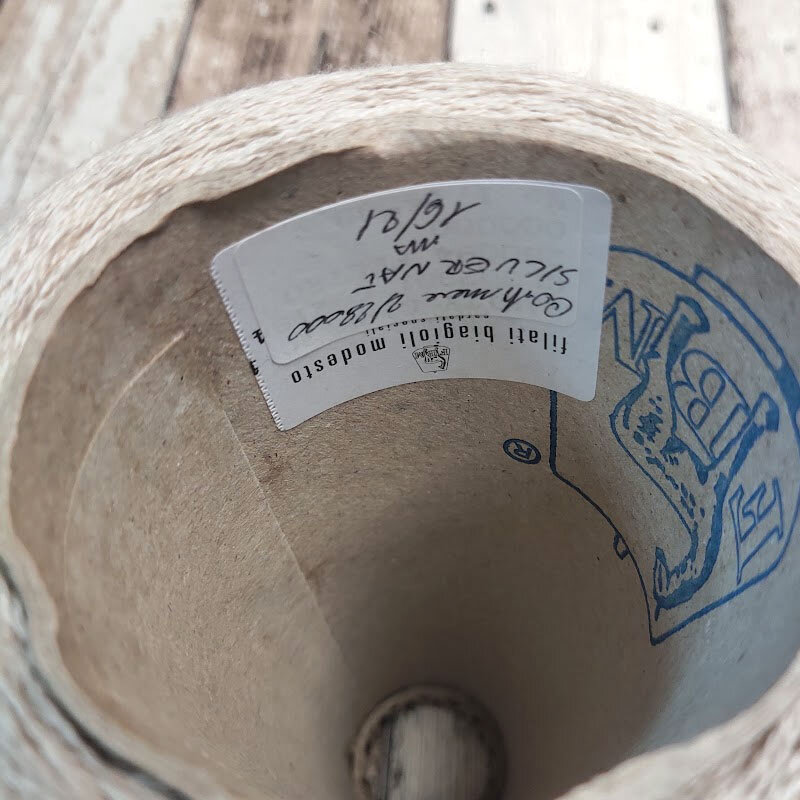 filati biagioli modesto
cardati speciali
Cashmere 2/28000
SILVER NAT
16/21
®